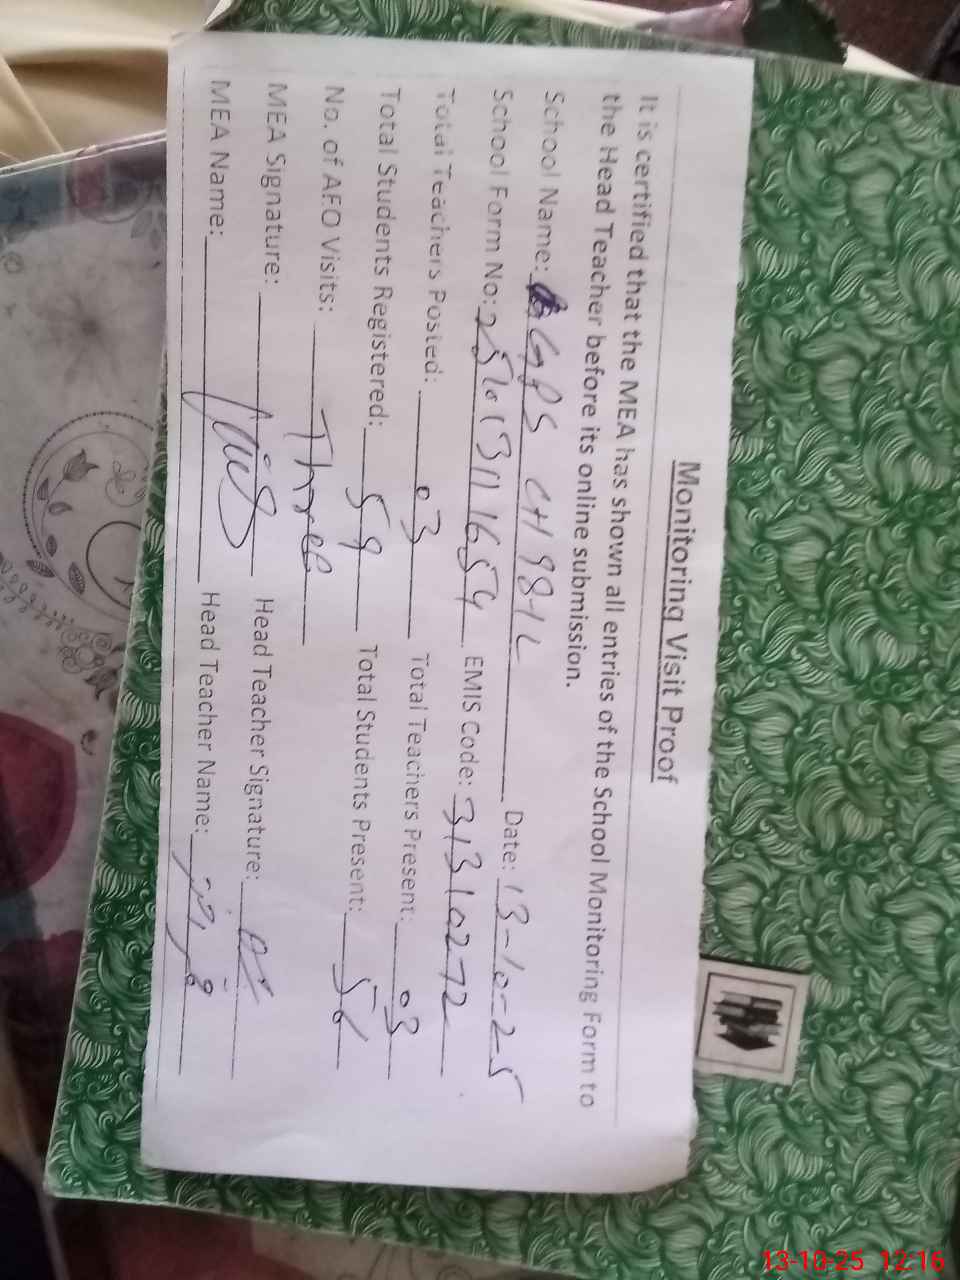 Monitoring Visit Proof
It is certified that the MEA has shown all entries of the School Monitoring Form to
the Head Teacher before its online submission.
School Name: GPS CH 98-1L Date: 13-10-25
School Form No: EMIS Code: 31310272
Total Teachers Posted: 03 Total Teachers Present: 03
Total Students Registered: 59 Total Students Present: 56
No. of AEO Visits: Three
MEA Signature: Head Teacher Signature:
MEA Name: Head Teacher Name:
13-10-25 12:16